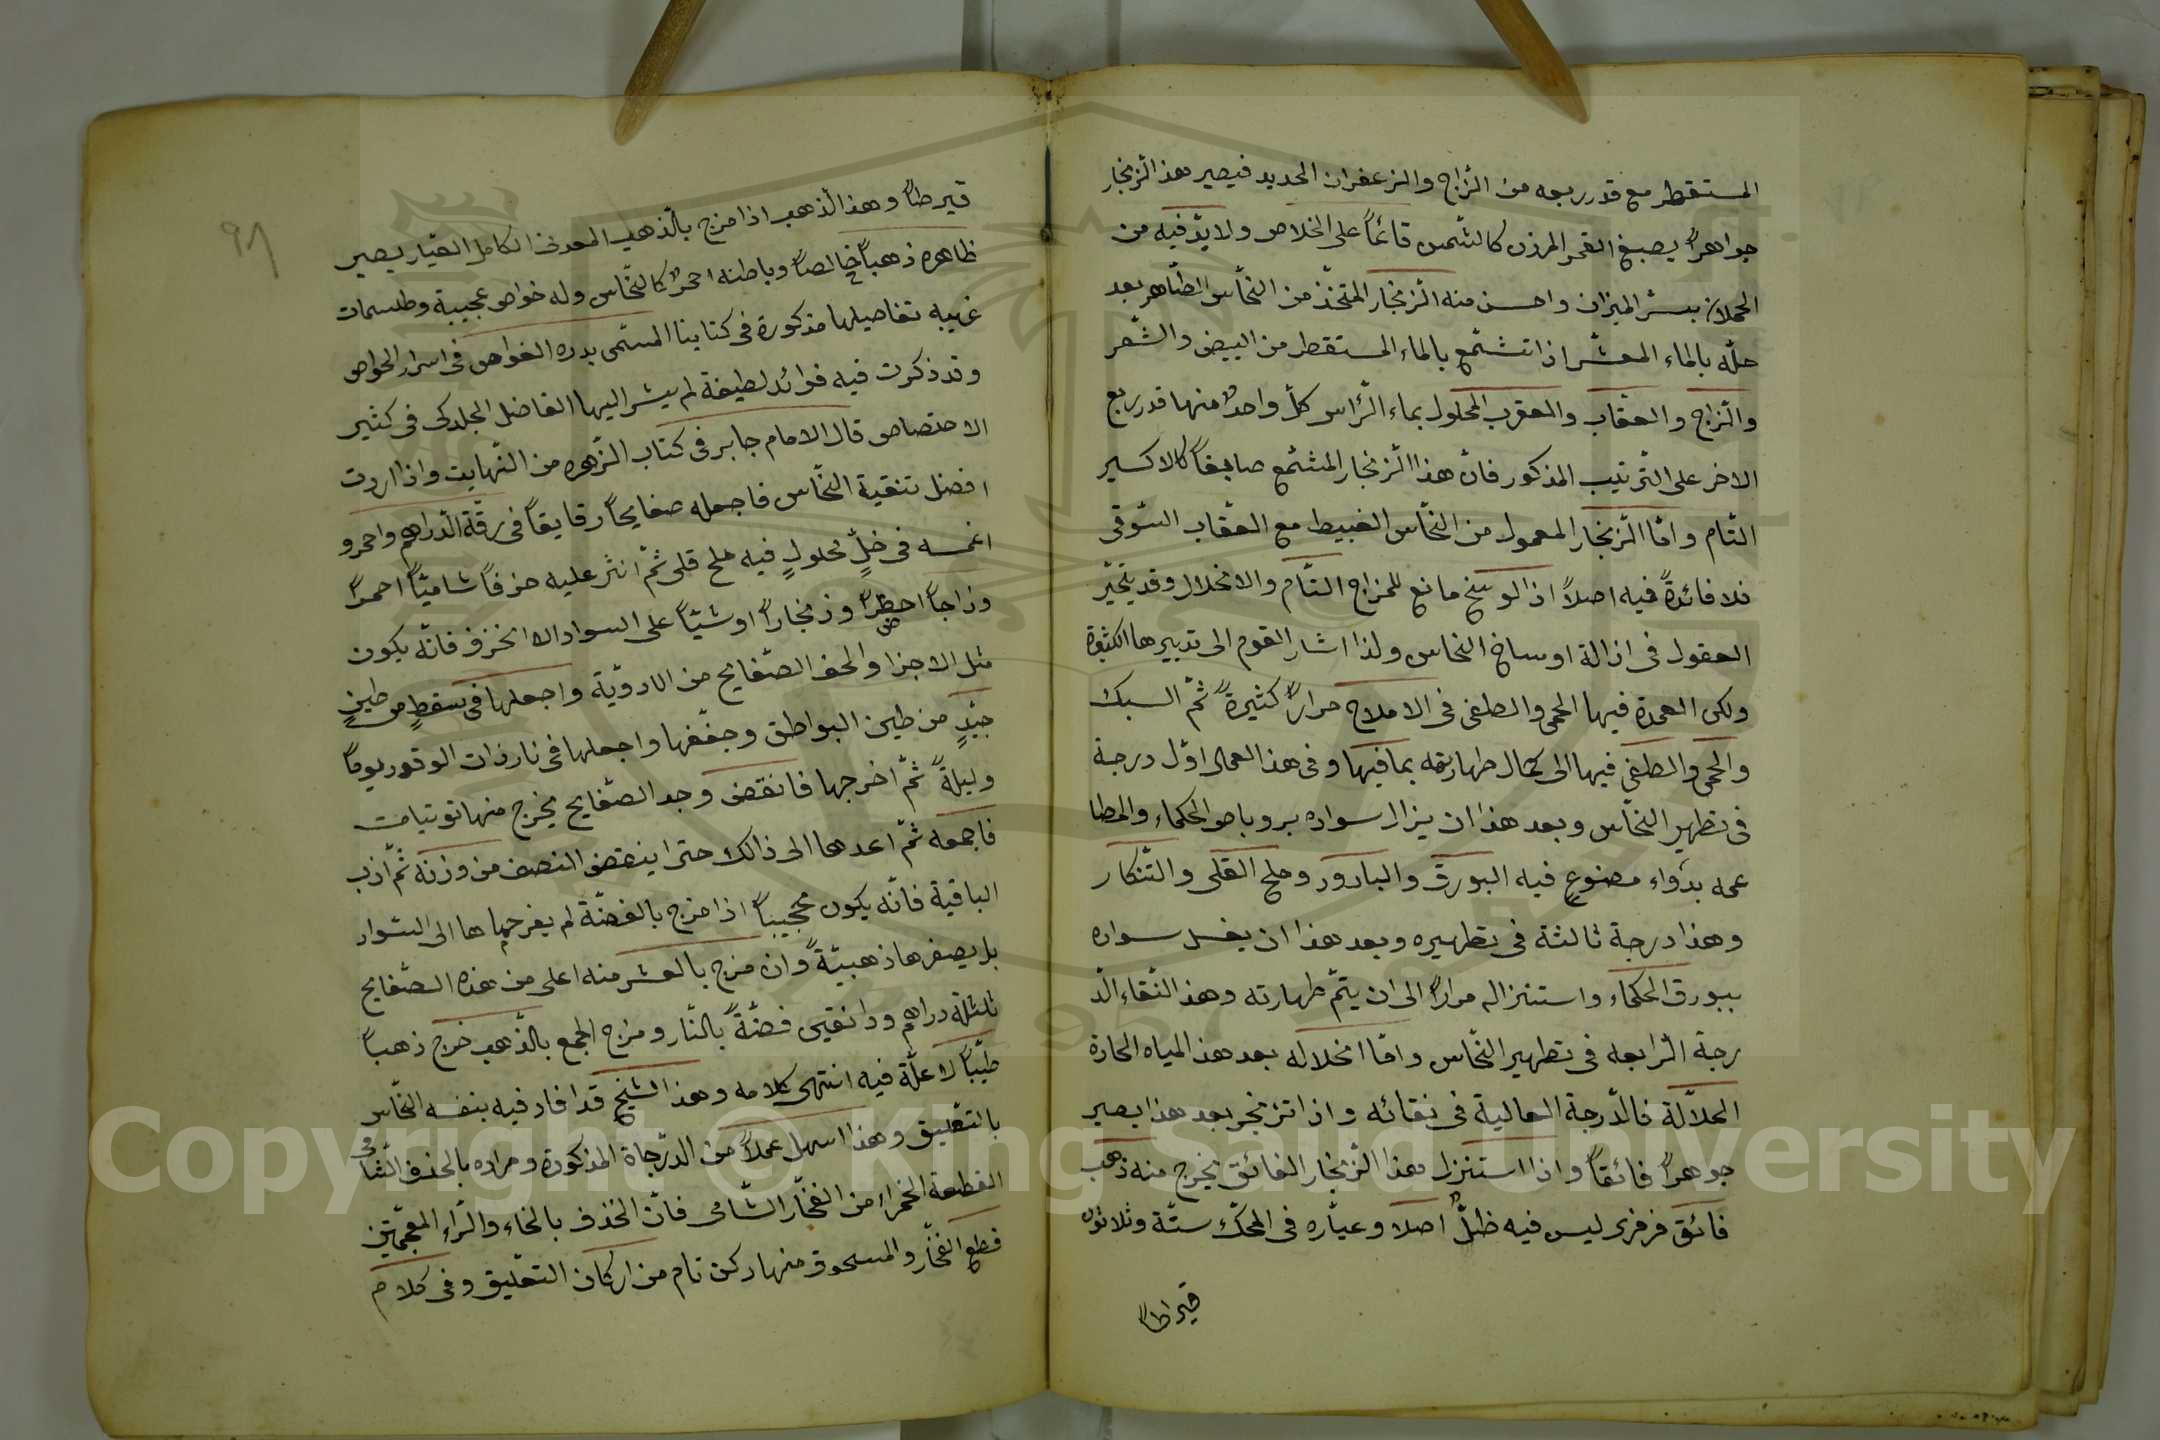 المستقطر مع قدر ربعه من الزّاج والزعفران الحديد فيصير هذا الزنجار
جواهراً يصبغ القمر المرزن كالشّمس قائماً على الخلاص ولا بدّ فيه من
الحملان بستر الميزان واحسن منه الزّنجار المتّخذ من النحّاس الطّاهر بعد
حلّه بالماء المعشّر اذا تشمّع بالماء المستقطر من البيض والشّعر
والزّاج والعقاب والعقرب المحلول بماء الرّاس كلّ واحدٍ منها قدر ربع
الاخر على التّرتيب المذكور فانّ هذا الزّنجار المشمّع صابغاً كالاكسير
التّام وامّا الزّنجار المعمول من النحّاس الغبيط مع العقاب السّوقى
فلا فائدةً فيه اصلاً اذ الوسخ مانع للمزاج التّام والانحلال وقد يتحيّر
العقول فى ازالة اوساخ النحاس ولذا اشار القوم الى تدبيرها الكثيرة
ولكن العمدة فيها الحمى والطفى فى الاملاح مراراً كثيرةً ثمّ السبك
والحمى والطفى فيها الى كمال طهارته بما فيها وفى هذا العمال اوّل درجة
فى تطهير النحّاس وبعد هذا ان يزال سواده بروباص الحكماء والمطا
عمه بدواء مصنوعٍ فيه البورق والبارود وملح القلى والتّنكار
وهذا درجة ثالثة فى تطهيره وبعد هذا ان يغسل سواده
ببورق الحكماء واستنزاله مراراً الى ان يتمّ طهارته وهذا النّقاء الّد
رجة الرّابعه فى تطهير النحّاس وامّا انحلاله بعد هذا المياه الحادة
المحلاّلة فالدّرجة العالية فى نقائه واذا تزنجر بعد هذا يصير
جوهراً فائقاً واذا استنزل هذا الزّنجار الفائق يخرج منه ذهب
فائق فرفرى ليس فيه ظلٌّ اصلا وعيّاره فى المحكّ ستّة وثلاثون
قيراطاً
٩٨
قيرطاً وهذا الذهب اذا مزج بالذّهب المعدنى الكامل العيّار يصير
ظاهره ذهباً خالصاً وباطنه احمرٌ كالنحّاس وله خواص عجيبة وطلسمات
غريبه تفاصيلها مذكورة فى كتابنا المسمّى بدره الغواص فى اسرار الخواص
وقد ذكرت فيه فوائد لطيفة لم يشر اليها الفاضل الجلدكى فى كثير
الاختصاص قال الامام جابر فى كتاب الزّهره من النّهايت واذا اردت
افضل تنقية النحّاس فاجعله صفايحاً رقايقاً فى رقّة الدّراهم واحمرو
اغمسه فى خلٍّ محلولٍ فيه ملح قلى ثمّ انثر عليه خزفاً شاميّاً احمراً
وزاجاً اخضراً وزنجاراً اوشيّاً على السواد الا الخزف فانّه يكون
مثل الاجزا والحف الصّفايح من الادويّة واجعلها فى سقطٍ من طينٍ
جيّدٍ من طين البواطق وجفّفها واجعلها فى نار ذات الوقود يوماً
وليلةً ثمّ اخرجها فانفض وجد الصّفايح يخرج منها توتيات
فاجمعه ثمّ اعدها الى ذالك حتى اينقض النصف من وزنه ثمّ اذب
الباقية فانّه يكون عجيباً اذا مزج بالفضّة لم يفرجها ها الى السّواد
بل يصفرها ذهبيّةً وان مزج بالعشر منه اعلى من هذه الصّفايح
ثلثلة دراهم ودانقين فضّةً بالنّار ومزاج الجمع بالذّهب خرج ذهباً
طيّباً لا علّة فيه انتهى كلامه وهذا الشيخ قد افاد فيه بنفسه النحّاس
بالتّعليق وهذا اسهل عملاً من الدّرجاة المذكورة ومراده بالخزف الشّامى
القطعة الحمراء من الفخّار الشّامى فانّ الخذف بالخاء والزّاء المعجمتين
قطع الفخّار والمسحوق منها ركن تام من اركان التعليق وفى كلام
Copyright © King Saud University
1957